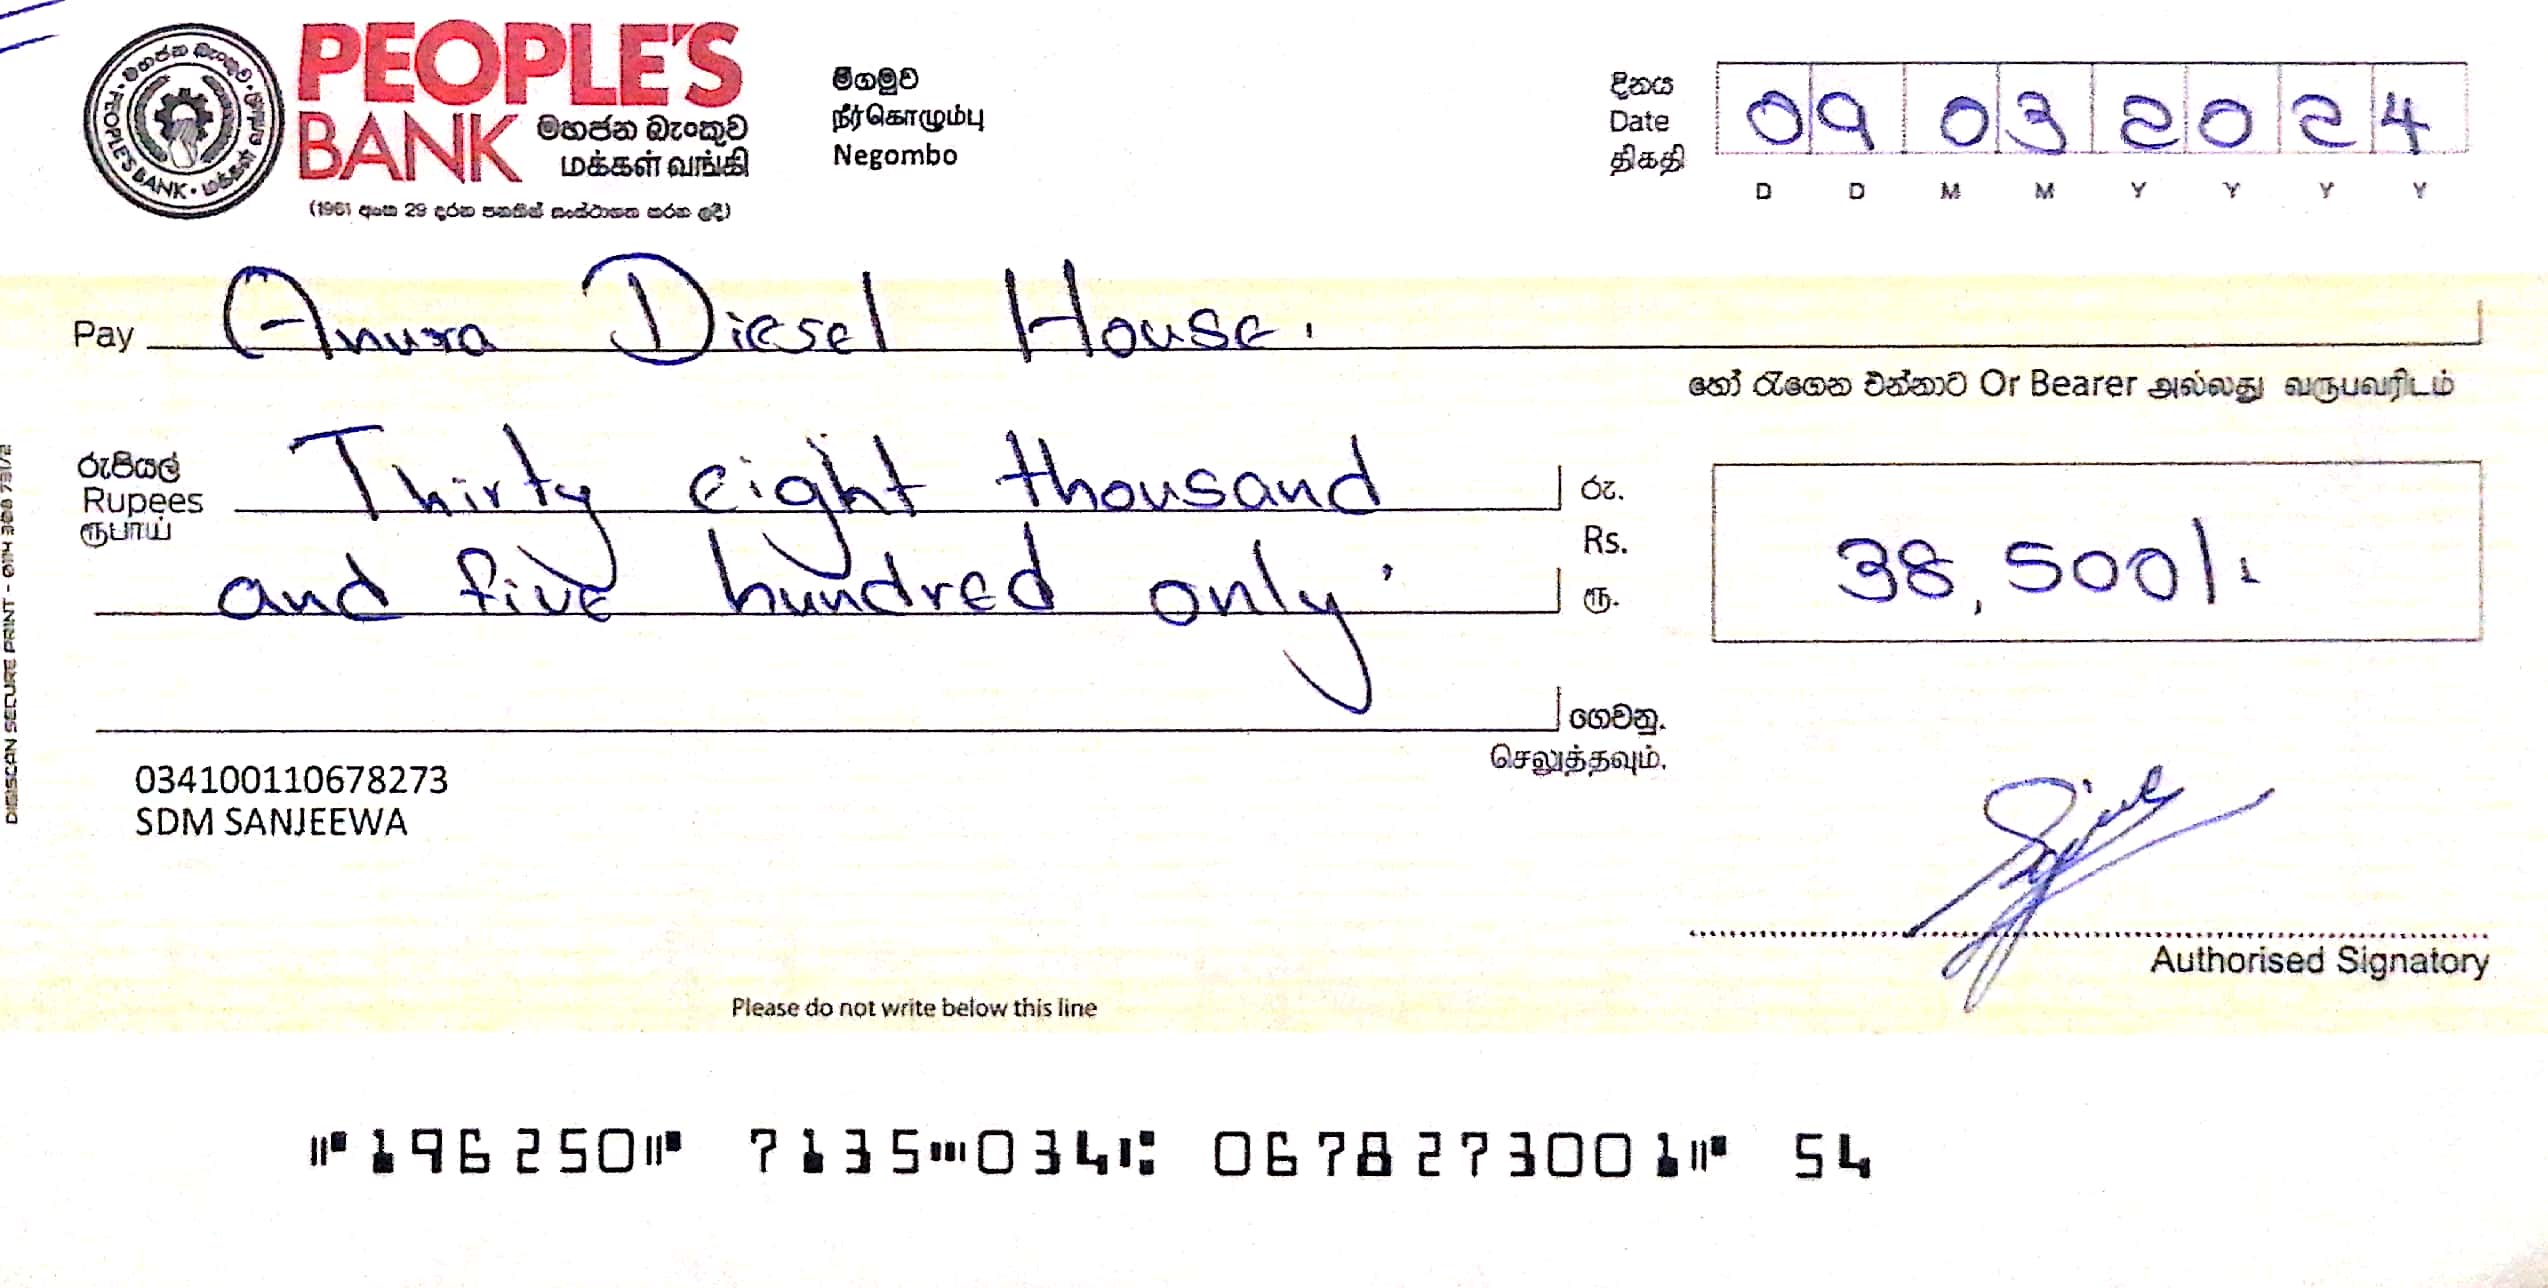 PEOPLE'S
BANK මහජන බැංකුව
மக்கள் வங்கி
(1961 අංක 29 දරන පනතින් සංස්ථාගත කරන ලදී)
මහජන බැංකුව • மக்கள் வங்கி • PEOPLE'S BANK •
මීගමුව
நீர்கொழும்பு
Negombo
දිනය
Date
திகதி
09 03 2024
D D M M Y Y Y Y
Pay Anura Diesel House.
හෝ රැගෙන එන්නාට Or Bearer அல்லது வருபவரிடம்
රුපියල්
Rupees
ரூபாய்
Thirty eight thousand
and five hundred only.
රු.
Rs.
ரூ.
38,500/.
ගෙවනු.
செலுத்தவும்.
034100110678273
SDM SANJEEWA
Authorised Signatory
Please do not write below this line
196250 7135 034 0678273001 54
DIGISCAN SECURE PRINT -